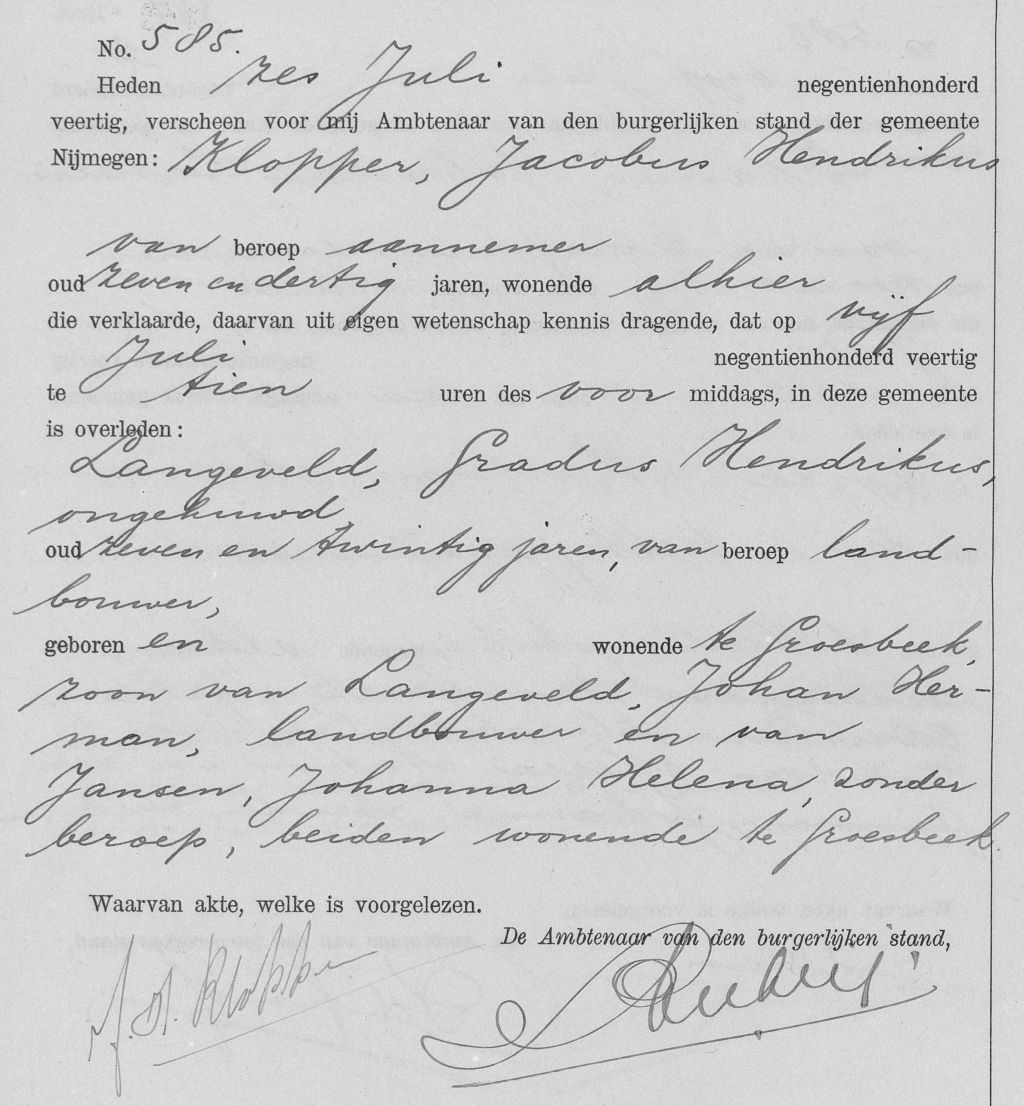 No. 585.
Heden zes Juli negentienhonderd
veertig, verscheen voor mij Ambtenaar van den burgerlijken stand der gemeente
Nijmegen: Klopper, Jacobus Hendrikus
van beroep aannemer
oud zeven en dertig jaren, wonende alhier
die verklaarde, daarvan uit eigen wetenschap kennis dragende, dat op vijf
Juli negentienhonderd veertig
te tien uren des voor middags, in deze gemeente
is overleden:
Langeveld, Gradus Hendrikus,
ongehuwd,
oud zeven en twintig jaren, van beroep land-
bouwer,
geboren en wonende te Groesbeek,
zoon van Langeveld, Johan Her-
man, landbouwer en van
Jansen, Johanna Helena, zonder
beroep, beiden wonende te Groesbeek.
Waarvan akte, welke is voorgelezen.
De Ambtenaar van den burgerlijken stand,
J. H. Klopper